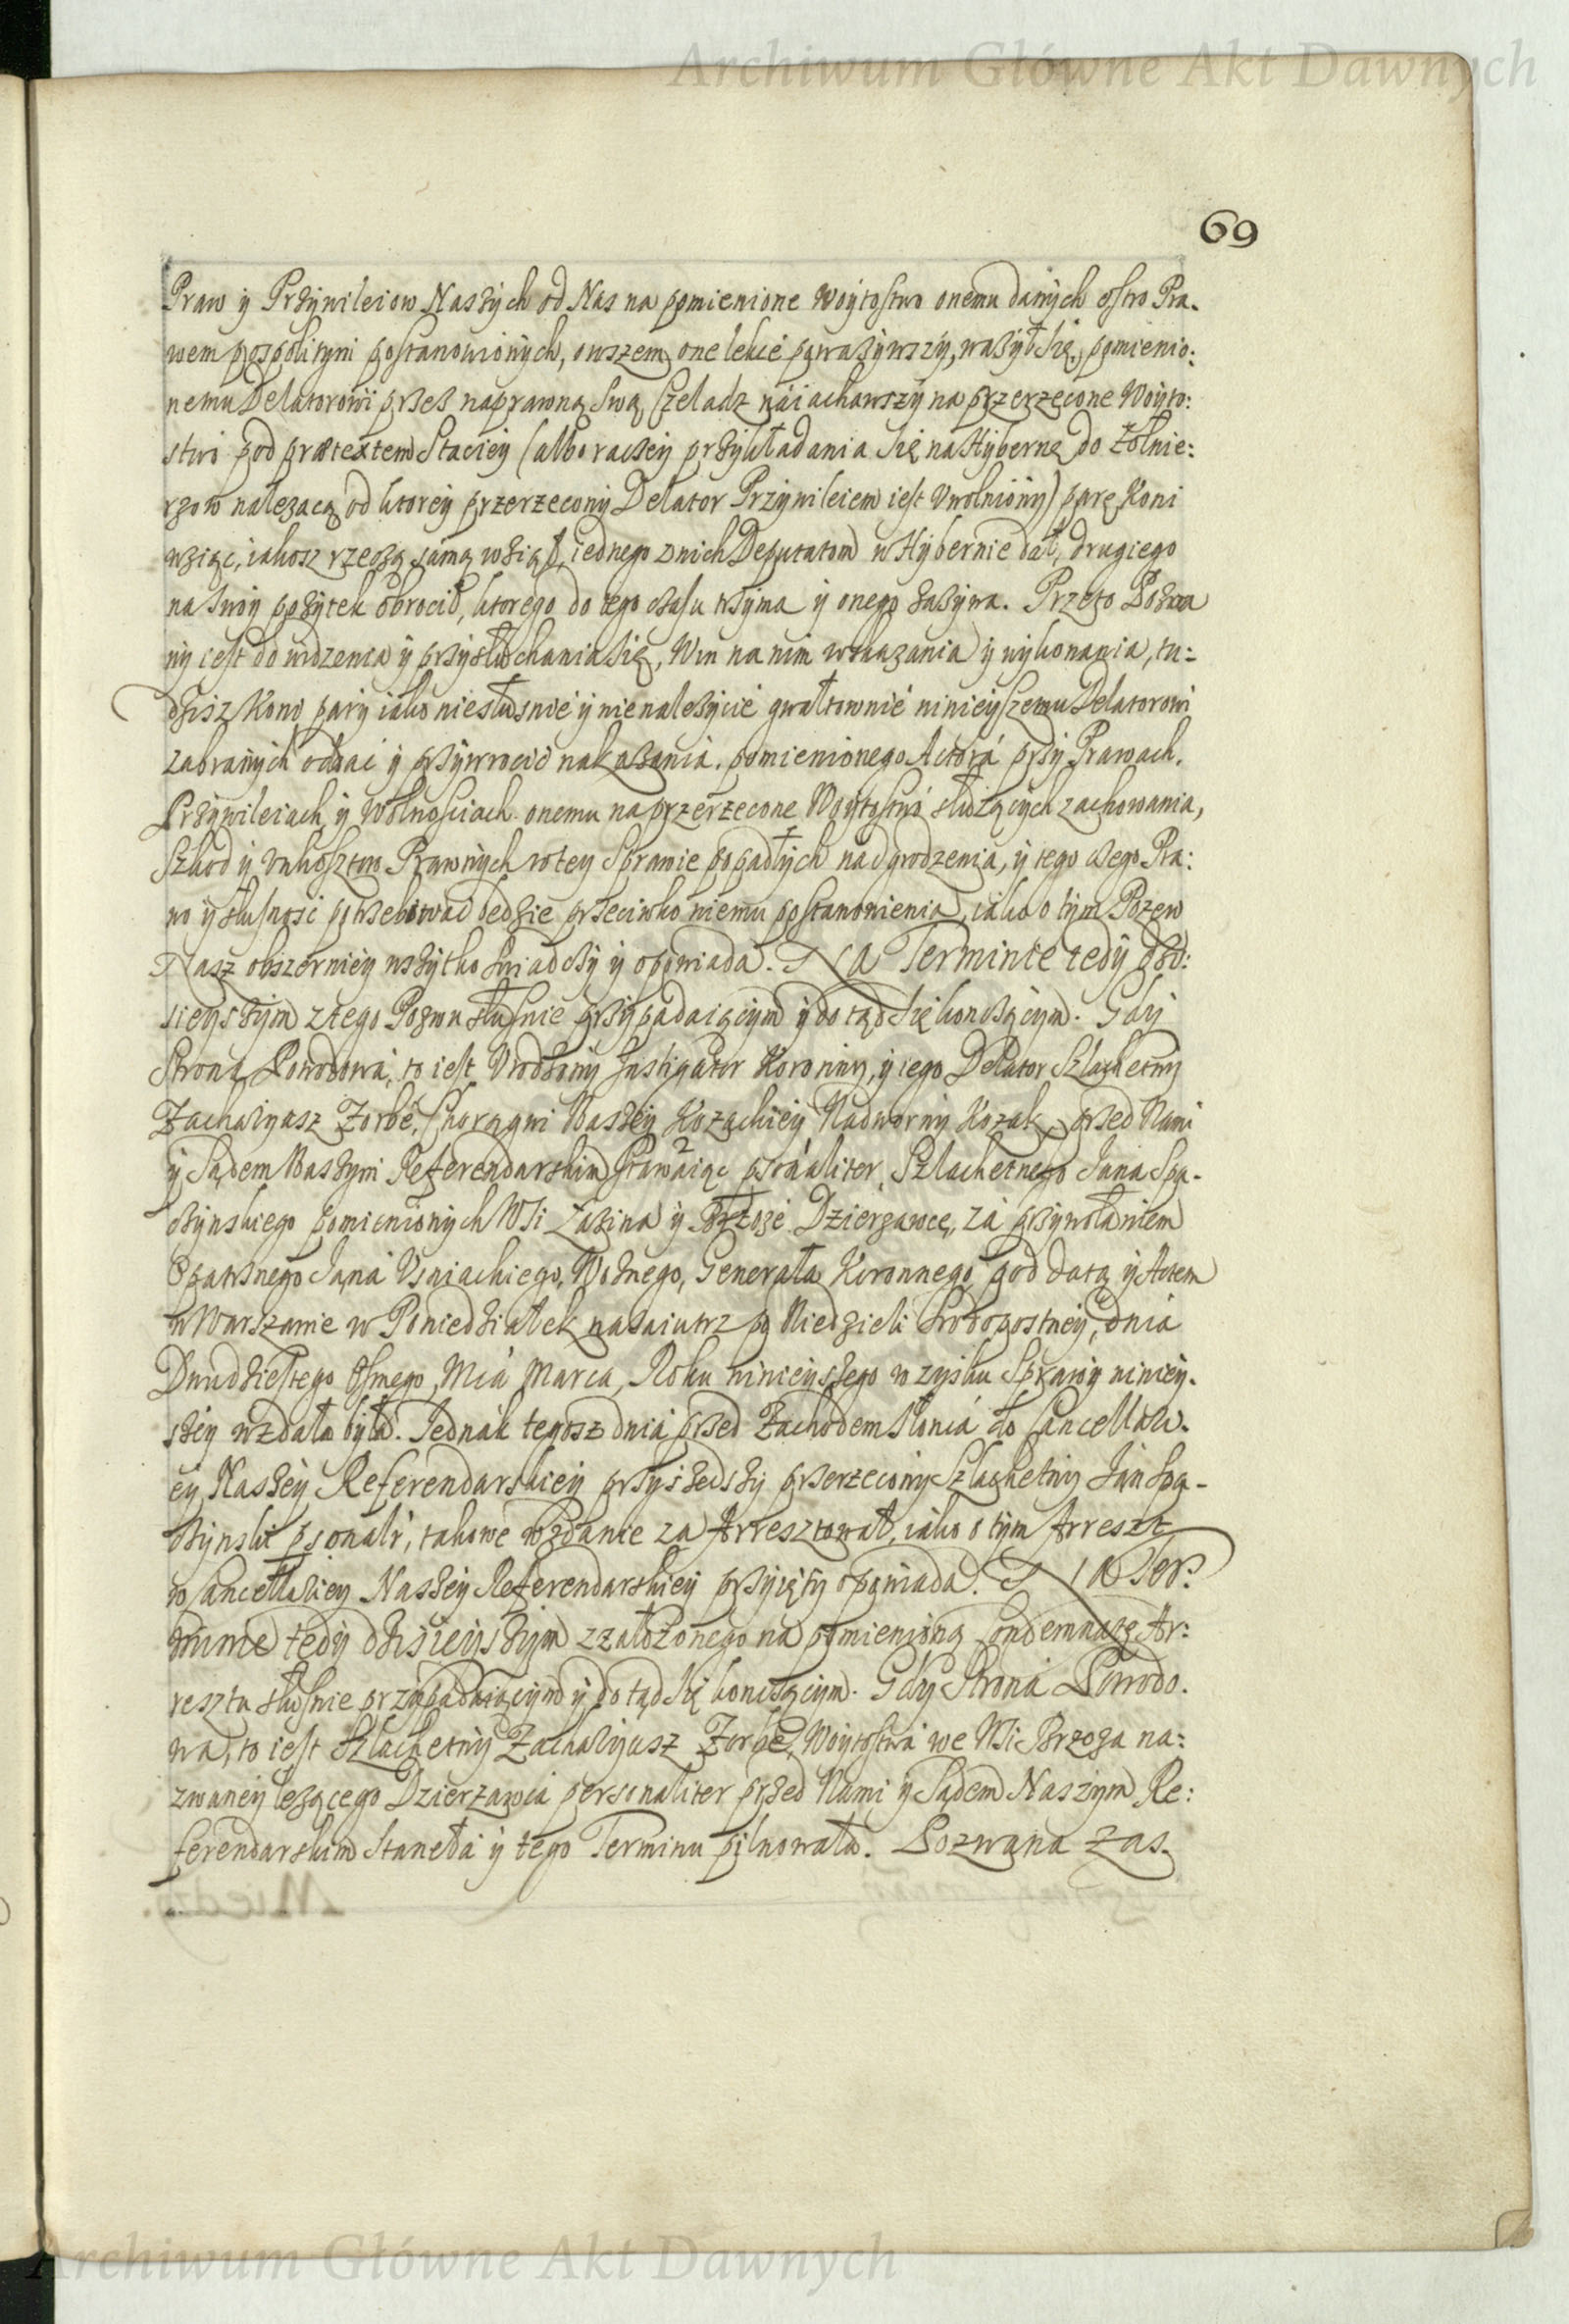 Archiwum Główne Akt Dawnych
69
Praw y Przywileiow Naszych od Nas na pomienione Woytostwo onemu danych ostro Pra.
wem pospolitym postanowionych, owszem one lekce poważywszy, ważył się, pomienio:
nemu Delatorowi przez naprawną swą Czeladz náiachawszy na przerzeczone Woyto:
stwo pod prætextem Staciey (albo raczey przykładania się na Hyberne do Zołnie:
rzow należącą od ktorey przerzeczony Delator Przywileiem iest Vwolniony) parę Koni
wziąc, iakosz rzeczą samą wziął, iednego z nich Deputatom w Hybernie dał, drugiego
na swoy pożytek obrocił, ktorego do tego czasu trzyma y onego zażywa. Przeto Pozwa
ny iest do widzenia y przysłuchania się, Win na nim wskazania y wykonania, tu:
dzisz Koni pary iako niesłusznie y nienależycie gwałtownie ninieyszemu Delatorowi
zabranych oddac y przywrocic nakazania. pomienionego Actora przy Prawach,
Przywileiach y Wolnosciach onemu na przerzeczone Woytostwo służących zachowania,
Szkod y Vnkosztow Prawnych w tey Sprawie popadłych nadgrodzenia, y tego czego Pra:
wo y słusznosc potrzebowac będzie przeciwko niemu postanowienia, iako o tym Pozew
Nasz obszerniey wszytko swiadczy y opowiada. Na Terminie tedy dzi:
sieyszym z tego Pozwu słusznie przypadaiącym y do tąd się kończącym. Gdy
Strona Powodowa, to iest Vrodzony Instigator Koronny, y iego Delator Szlachetny
Zacharyasz Zorbe, Chorągwi Naszey Kozackiey Nadworny Kozak, przed Nami
y Sądem Naszym Referendarskim stawaiąc psonaliter, Szlachetnego Jana Spa-
czynskiego pomienionych Wsi Zazina y Brzoze Dzierżawcę, za przywołaniem
Opatrznego Jana Vsniackiego, Woznego, Generała Koronnego pod datą y Actem
w Warszawie w Poniedziałek nazaiutrz po Niedzieli Srodopostney, dnia
Dwudziestego Osmego, Mca Marca, Roku ninieyszego w zysku Sprawy niniey.
szey wzdała była. Jednak tegosz dnia przed Zachodem słonca do Cancellary.
ey Naszey Referendarskiey przyszedszy przerzeczony Szlachetny Jan Spa-
czynski psonalr, takowe wzdanie za Arresztował, iako o tym Arreszt
w Cancellariey Naszey Referendarskiey przyięty opowiada. Na Ter:
minie tedy dzisieyszym z założonego na pomienioną Condemnatę Ar:
resztu słusznie przypadaiącym y do tąd się kończącym. Gdy Strona Powodo.
wa, to iest Szlachetny Zacharyasz Zorbe, Woytostwa we Wsi Brzoza na:
zwaney leżącego Dzierżawca personaliter przed Nami y Sądem Naszym Re:
ferendarskim Staneła y tego Terminu pilnowała. Pozwana zas.
Archiwum Główne Akt Dawnych